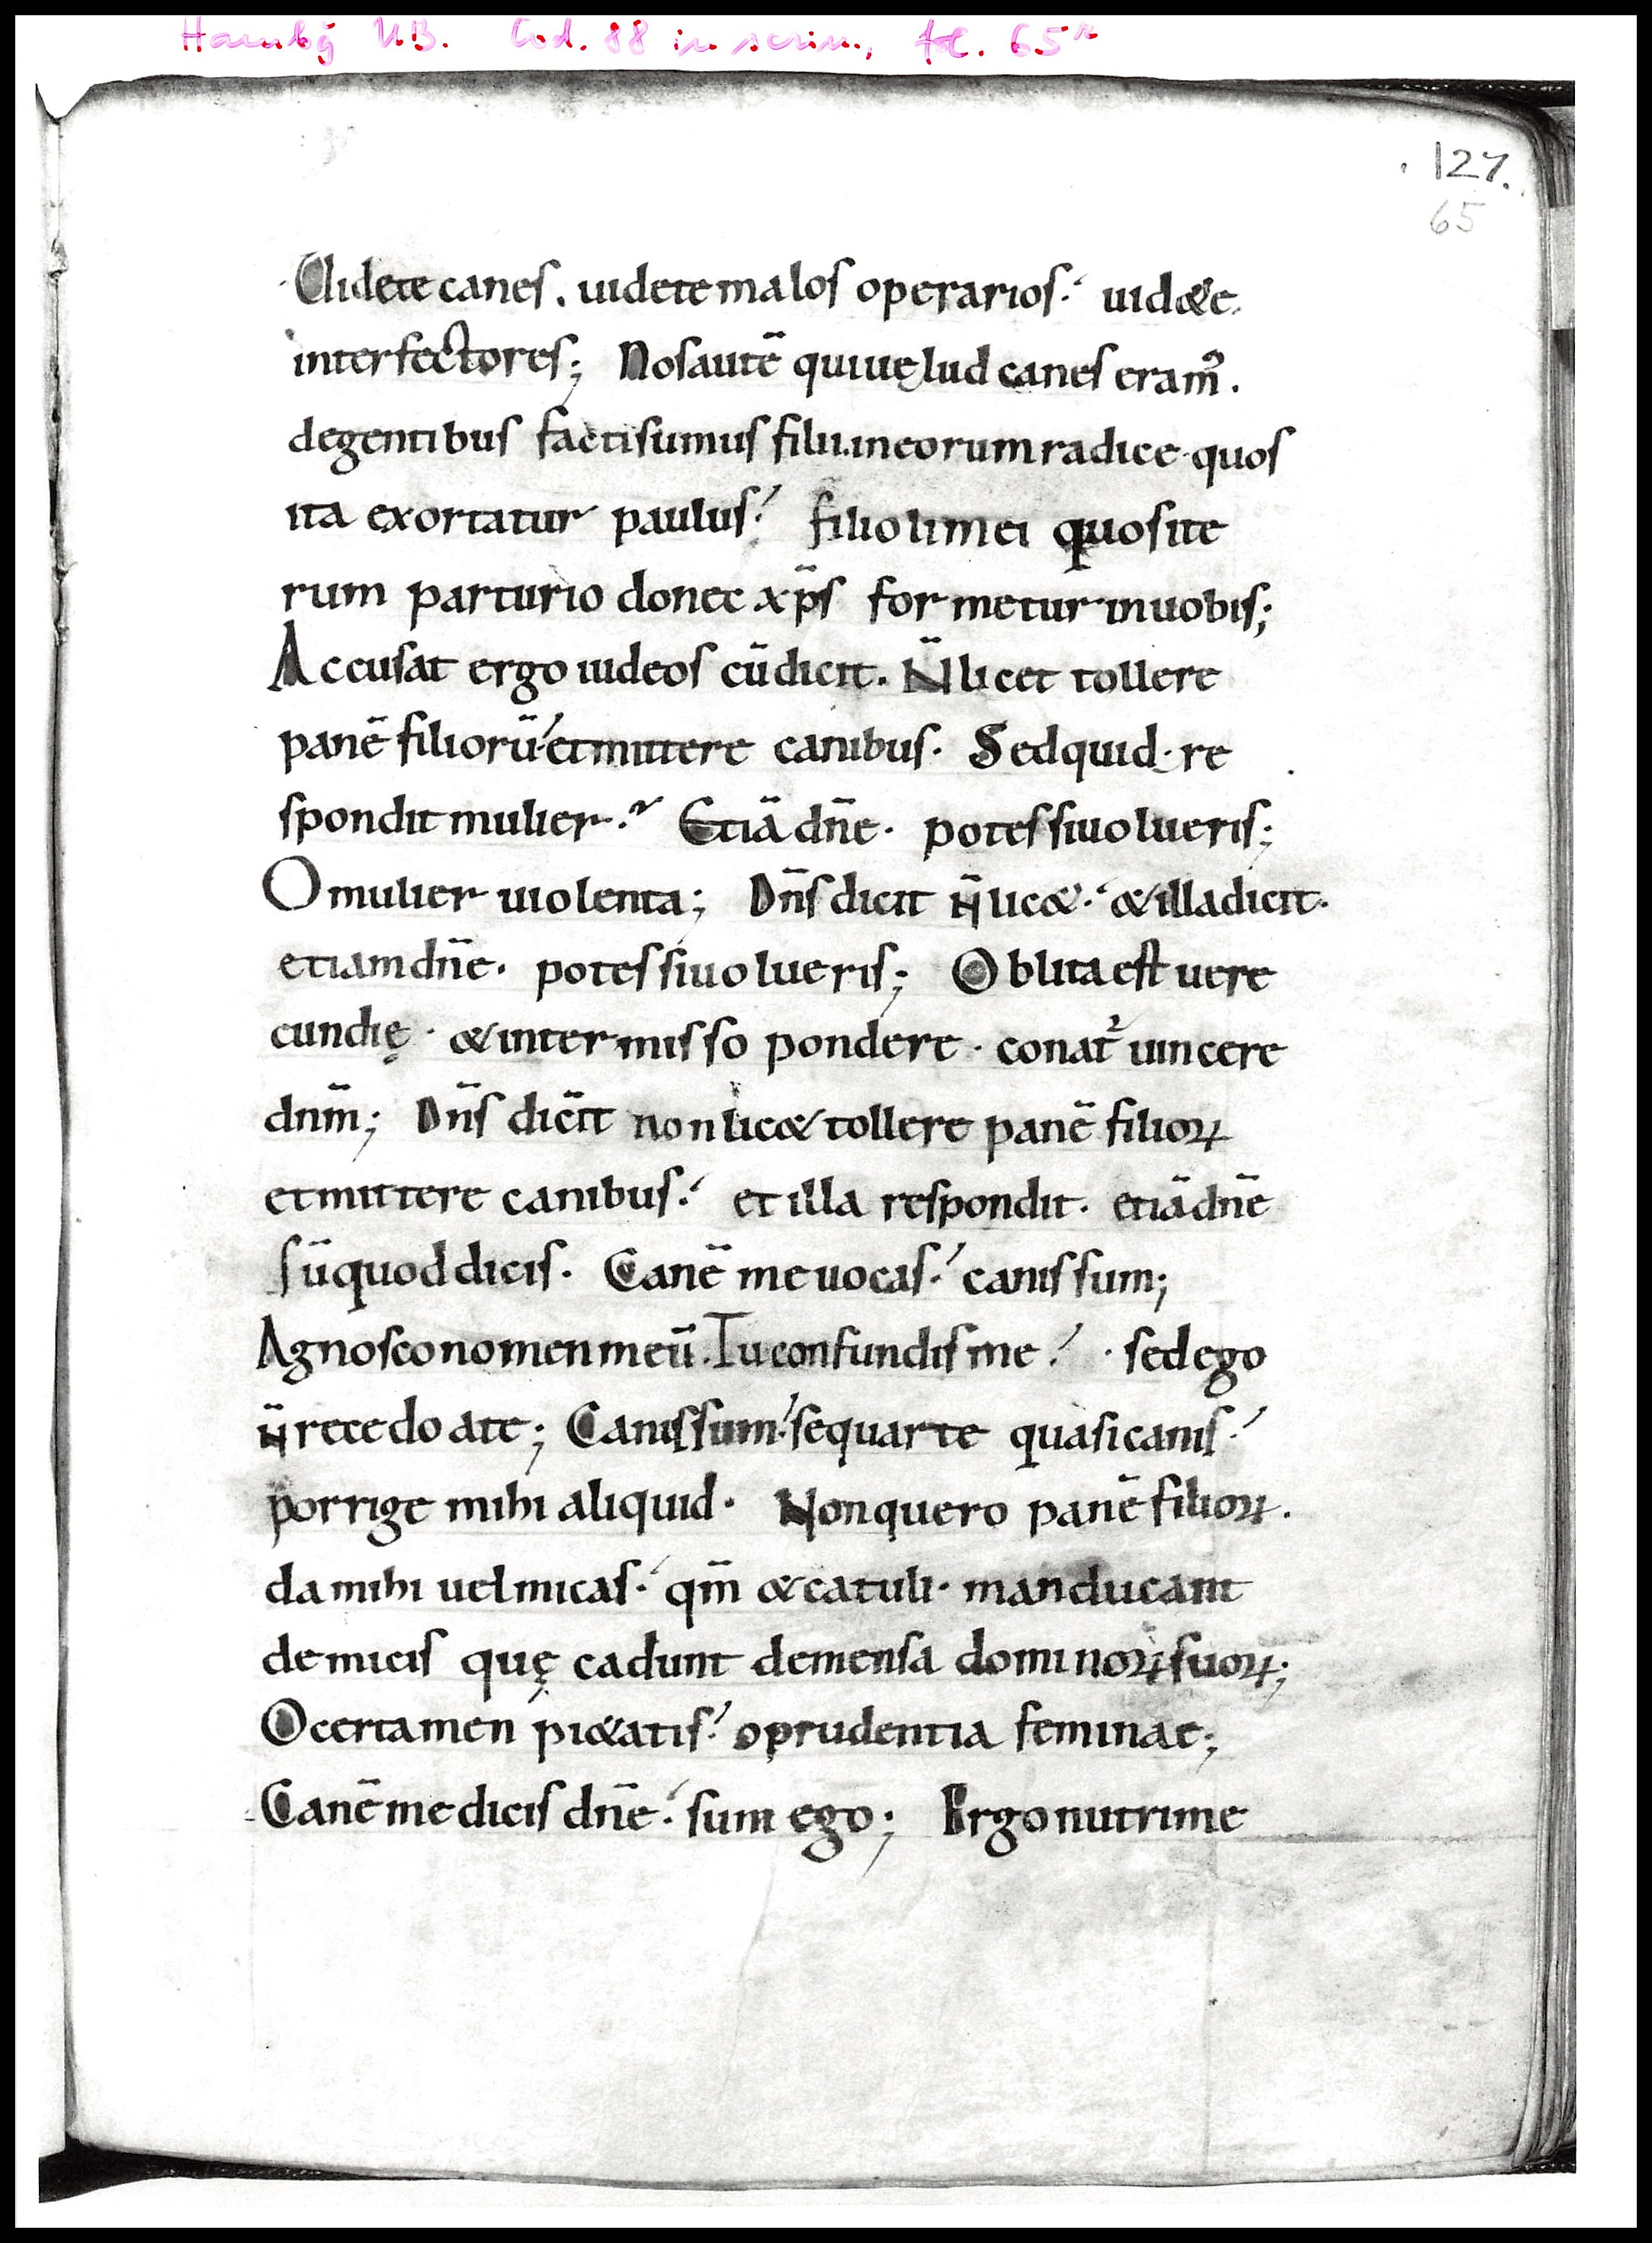 Hambg U.B. Cod. 88 in scrin., fol. 65r
. 127.
65
Uidete canes. uidete malos operarios. uidete
interfectores; Nos autē qui uelud canes eram᾿.
de gentibus facti sumus filii. in eorum radice quos
ita exortatur paulus. filioli mei quos ite
rum parturio donec xp̄s formetur in uobis;
Accusat ergo iudeos cū dicit. N̄ licet tollere
panē filiorū et mittere canibus. Sed quid re
spondit mulier. Etiā dn̄e. potes si uolueris;
O mulier uiolenta; Dn̄s dicit n̄ lic&. & illa dicit.
etiam dn̄e. potes si uolueris; Oblita est uere
cundię. & intermisso pondere. conat᷑ uincere
dnm̄; Dn̄s dicit non lic& tollere panē filioꝝ
et mittere canibus. et illa respondit. etiā dn̄e
sū quod dicis. Canē me uocas. canis sum;
Agnosco nomen meū. Tu confundis me. sed ego
n̄ recedo a te; Canis sum. sequar te quasi canis.
porrige mihi aliquid. Non quero panē filioꝝ.
da mihi uel micas. qm̄ & catuli. manducant
de micis quę cadunt de mensa dominoꝝ suoꝝ;
O certamen pi&atis. o prudentia feminae;
Canē me dicis dn̄e. sum ego; Ergo nutri me